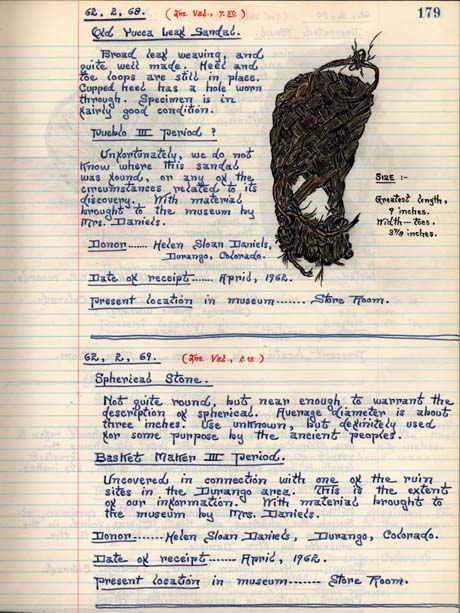 179
62, 2, 68. (Ins. Val., 7.50)
Old Yucca Leaf Sandal.
Broad leaf weaving, and
quite well made. Heel and
toe loops are still in place.
Cupped heel has a hole worn
through. Specimen is in
fairly good condition.
Pueblo III Period ?
Unfortunately, we do not
know where this sandal
was found, or any of the
circumstances related to its
discovery. With material
brought to the museum by
Mrs. Daniels.
Donor...... Helen Sloan Daniels,
Durango, Colorado.
Date of receipt...... April, 1962.
Present location in museum....... Store Room.
SIZE :-
Greatest length,
9 inches.
Width--toes.
3 7/8 inches.
62, 2, 69. (Ins. Val.,
Spherical Stone.
Not quite round, but near enough to warrant the
description of spherical. Average diameter is about
three inches. Use unknown, but definitely used
for some purpose by the ancient peoples.
Basket Maker III Period.
Uncovered in connection with one of the ruin
sites in the Durango area. This is the extent
of our information. With material brought to
the museum by Mrs. Daniels.
Donor......Helen Sloan Daniels, Durango, Colorado.
Date of receipt------ April, 1962.
Present location in museum------- Store Room.